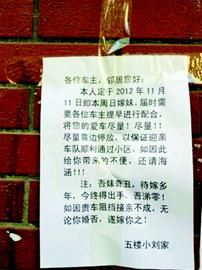 各位车主，邻居您好：
本人定于 2012 年 11 月
11 日即本周日嫁妹，届时需
要各位车主提早进行配合，
将您的爱车尽量！尽量！！
尽量靠边停放，以保证迎亲
车队顺利通过小区，如因此
给你带来的不便，还请海
涵!!!
注：吾妹奇丑，待嫁多
年，今终得出手，吾涕零！
如因贵车阻挡接亲不成，无
论你婚否，遂嫁你之！
五楼小刘家